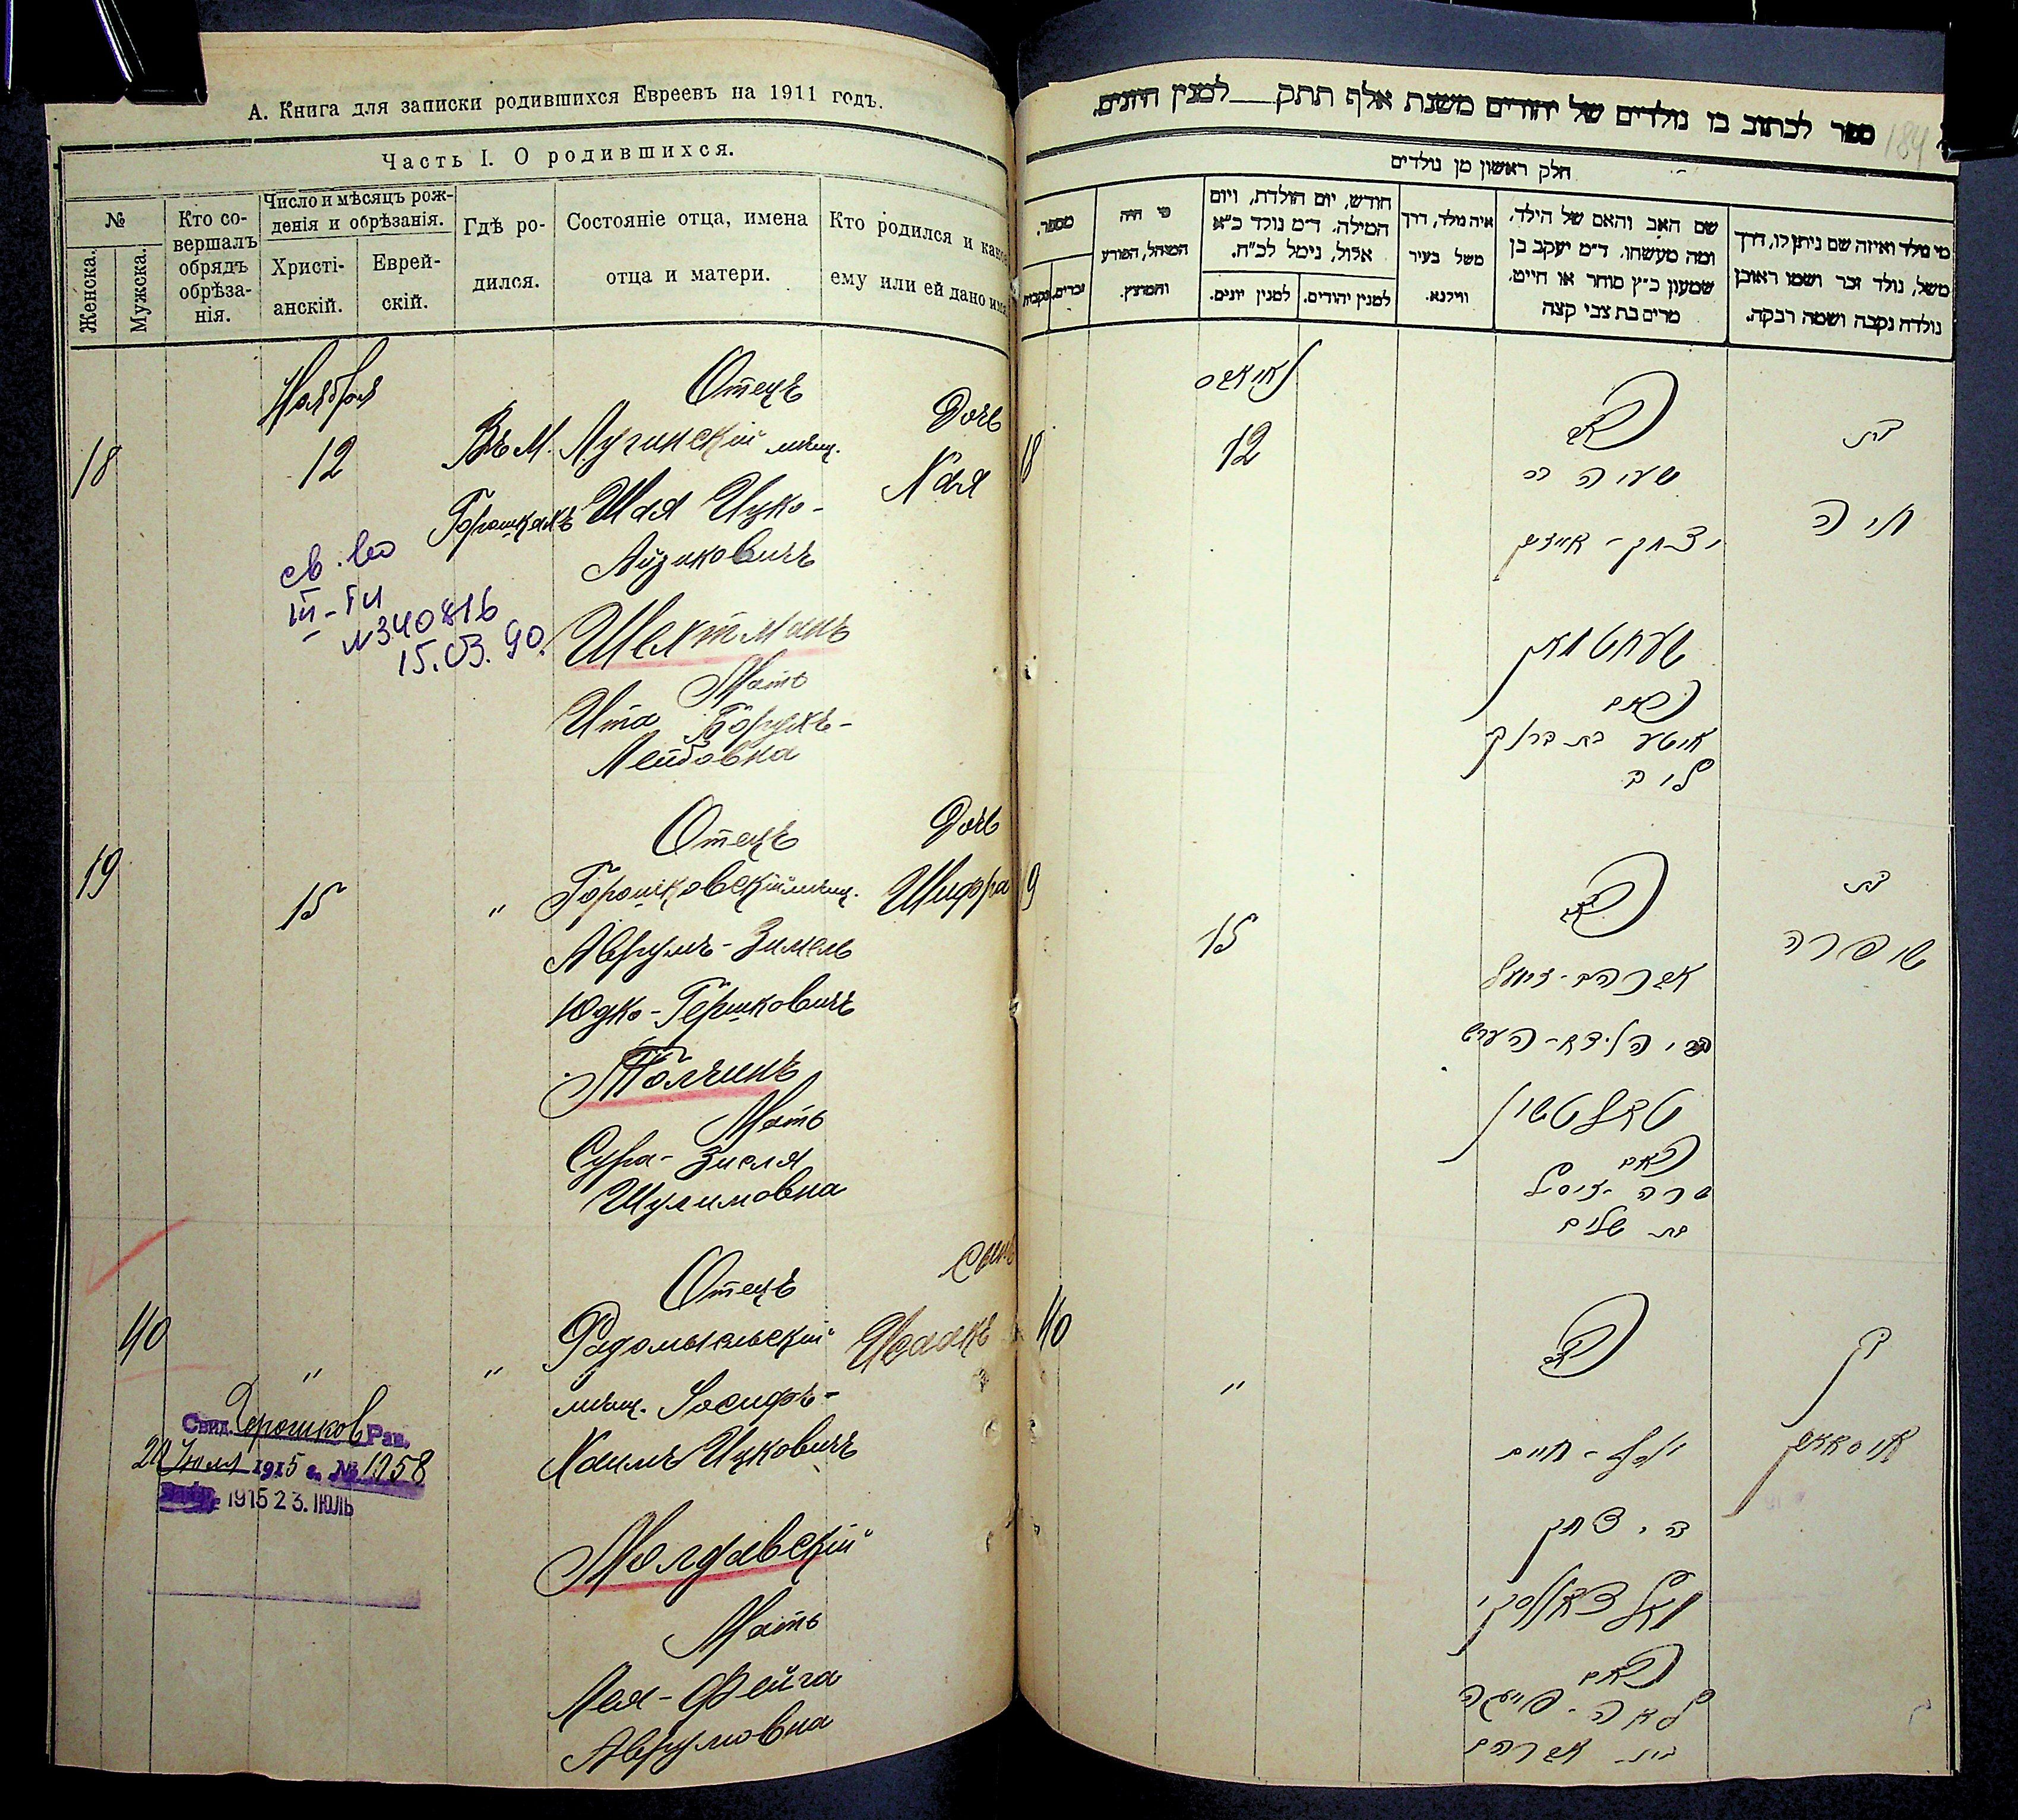 А. Книга для записки родившихся Евреевъ на 1911 годъ.
Часть I. О родившихся.
№
Женска.
Мужска.
Кто со-
вершалъ
обрядъ
обрѣза-
нія.
Число и мѣсяцъ рож-
денія и обрѣзанія.
Христі-
анскій.
Еврей-
скій.
Гдѣ ро-
дился.
Состояніе отца, имена
отца и матери.
Кто родился и какое
ему или ей дано имя
Ноября
18
12
Въ М.
Горошкахъ
Отецъ
Лугинскій мѣщ.
Шая Ицко-
Айзиковичъ
Шехтманъ
Мать
Ита Борухъ-
Лейбовна
Дочь
Хая
св. во
№340816
15.03.90.
19
15
"
Отецъ
Горошковскій мѣщ.
Аврумъ-Зимель
Юдко-Гершковичъ
Толчинъ
Мать
Сура-Зисля
Шулимовна
Дочь
Шифра
40
"
"
Отецъ
Радомысльскій
мѣщ. Іосифъ-
Хаимъ Ицковичъ
Молдавскій
Мать
Лея-Фейга
Аврумовна
Сынъ
Исаакъ
Свид. Горошков Рав.
20 Июля 1915 г. № 1958
1915 23. ІЮЛЬ
ספר לכתוב בו נולדים של יהודים משנת אלף תתק__למנין היונים.
184
חלק ראשון מן נולדים
מי נולד ואיזה שם ניתן לו, דרך
משל, נולד זכר ושמו ראובן
נולדה נקבה ושמה רבקה.
שם האב והאם של הילד,
ומה מעשהו. ד״מ יעקב בן
שמעון כ״ץ סוחר או חייט.
מרים בת צבי קצה
איה נולד, דרך
משל בעיר
ווילנא.
חודש, יום הולדת, ויום
המילה. ד״מ נולד כ״א
אלול, נימל לכ״ח.
למנין יהודים.
למנין יונים.
מי היה
המוהל, הפורע
והמוצץ.
מספר,
זכרים.
נקבות
18
12
האב
שעיה בר
יצחק-אייזיק
שעחטמאן
האם
איטע בת ברוך
ליב
בת
חיה
19
15
האב
אברהם-זימל
האם
שרה-זיסל
בת שלום
בת
שפרה
40
"
האב
יוסף-חיים
ב״ר יצחק
האם
לאה-פייגה
בת אברהם
בן
איסאאק